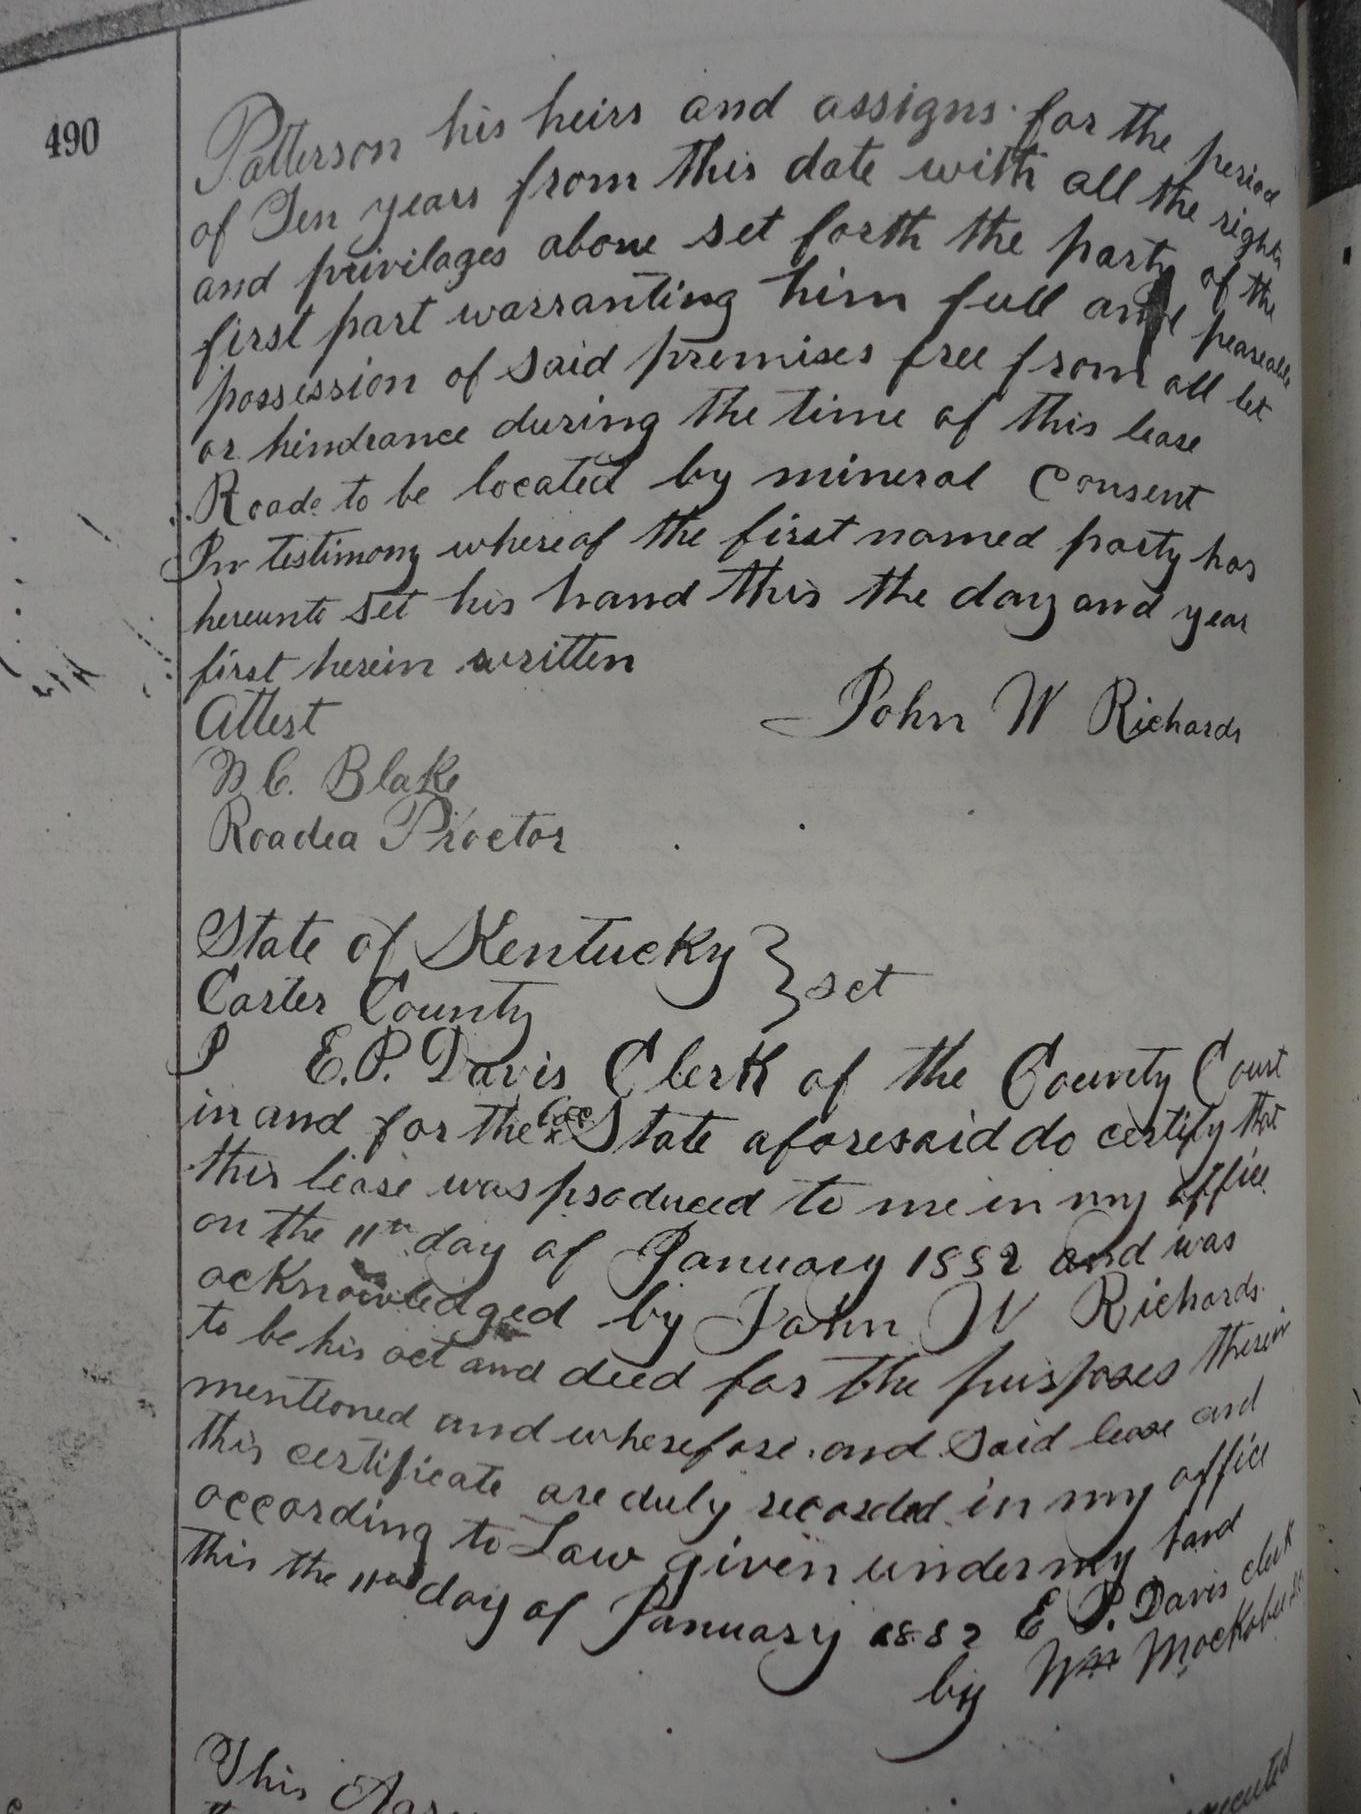 490
Patterson his heirs and assigns for the period
of Ten years from this date with all the rights
and privilages above set forth the party of the
first part warranting him full and peaseable
possession of said premises free from all let
or hindrance during the time of this lease
Roads to be located by mineral Consent
In testimony whereof the first named party has
hereunto set his hand this the day and year
first herein written
John W Richards
Attest
W. C. Blake
Roadea Proctor
State of Kentucky } sct
Carter County
I E. P. Davis Clerk of the County Court
in and for the Co & State aforesaid do certify that
this lease was produced to me in my office
on the 11th day of January 1882 and was
acknowledged by John W Richards
to be his act and deed for the purposes therein
mentioned and wherefore and said lease and
this certificate are duly recorded in my office
according to Law given under my hand
this the 11th day of January 1882 E P. Davis clerk
by Wm
This